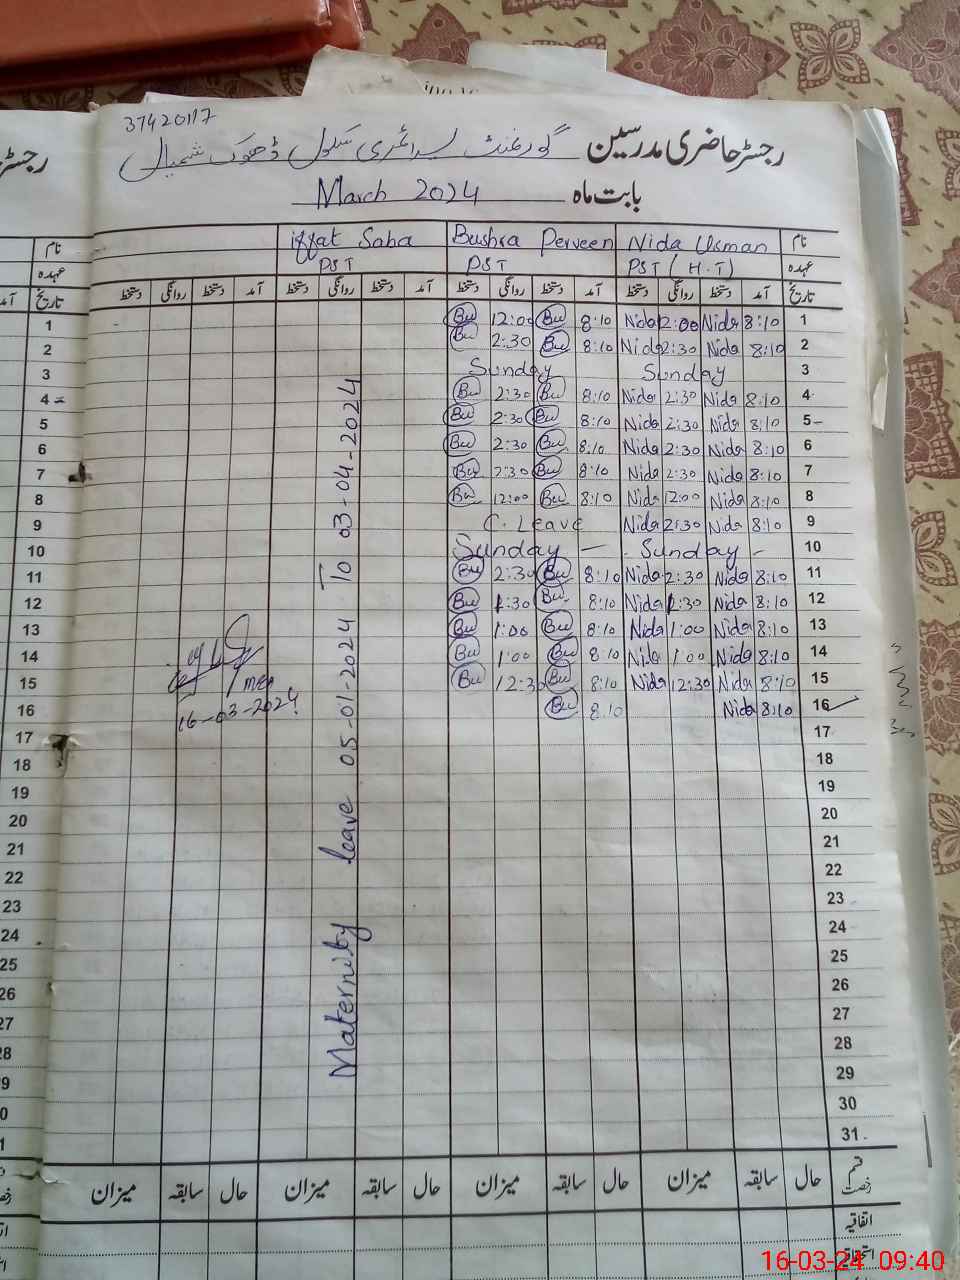 37420117
رجسٹر حاضری مدرسین گورنمنٹ پرائمری سکول ڈھوک شمیال
بابت ماہ March 2024
نام Nida Usman Bushra Perveen iffat Saba
عہدہ PST (H.T) PST PST
تاریخ آمد دستخط روانگی دستخط آمد دستخط روانگی دستخط آمد دستخط روانگی دستخط آمد دستخط روانگی دستخط
1 8:10 Nida 12:00 Nida 8:10 Bu 12:00 Bu
2 8:10 Nida 2:30 Nida 8:10 Bu 2:30 Bu
3 Sunday Sunday
4 8:10 Nida 2:30 Nida 8:10 Bu 2:30 Bu
5 8:10 Nida 2:30 Nida 8:10 Bu 2:30 Bu
6 8:10 Nida 2:30 Nida 8:10 Bu 2:30 Bu
7 8:10 Nida 2:30 Nida 8:10 Bu 2:30 Bu
8 8:10 Nida 12:00 Nida 8:10 Bu 12:00 Bu
9 8:10 Nida 2:30 Nida C. Leave
10 Sunday - Sunday -
11 8:10 Nida 2:30 Nida 8:10 Bu 2:30 Bu
12 8:10 Nida 1:30 Nida 8:10 Bu 1:30 Bu
13 8:10 Nida 1:00 Nida 8:10 Bu 1:00 Bu
14 8:10 Nida 1:00 Nida 8:10 Bu 1:00 Bu
15 8:10 Nida 12:30 Nida 8:10 Bu 12:30 Bu
16 8:10 Nida 8:10 Bu
17
18
19
20
21
22
23
24
25
26
27
28
29
30
31
Maternity leave 05-01-2024 To 03-04-2024
mea
16-03-2024
قسم رخصت حال سابقہ میزان حال سابقہ میزان حال سابقہ میزان حال سابقہ میزان
اتفاقیہ
استحقاقیہ
16-03-24 09:40